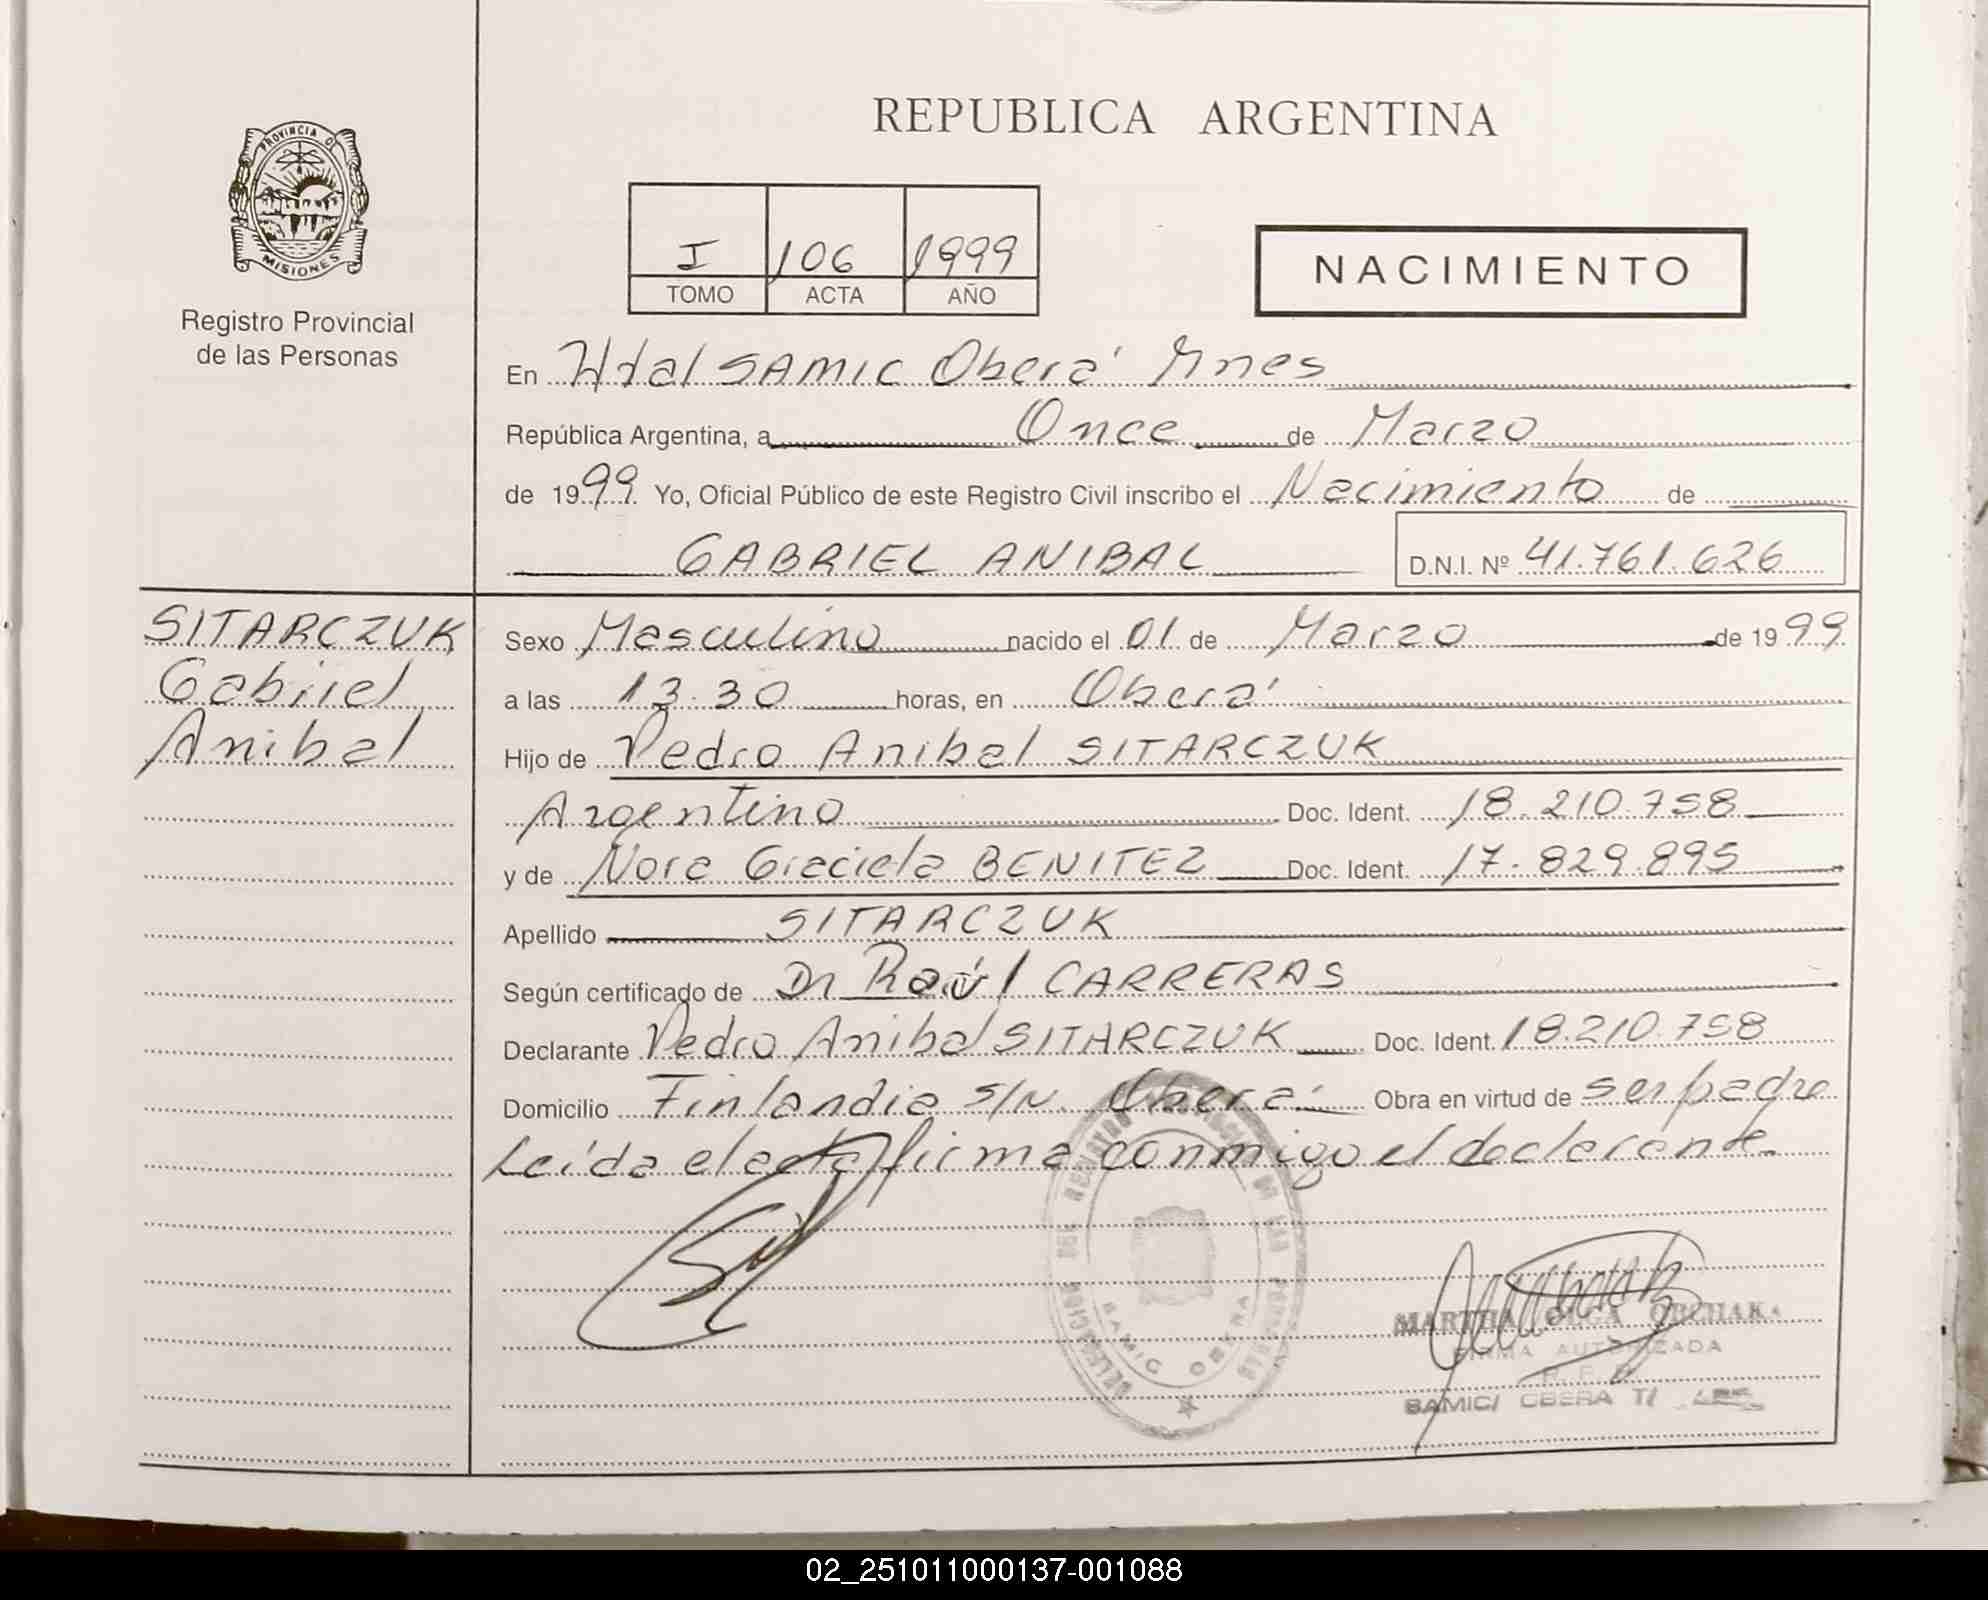 REPUBLICA ARGENTINA
PROVINCIA DE
MISIONES
Registro Provincial
de las Personas
I 106 1999
TOMO ACTA AÑO
NACIMIENTO
En Htal SAMIC Oberá Mnes
República Argentina, a Once de Marzo
de 1999 Yo, Oficial Público de este Registro Civil inscribo el Nacimiento de
GABRIEL ANIBAL D.N.I. Nº 41.761.626
SITARCZUK
Gabriel
Anibal
Sexo Masculino nacido el 01 de Marzo de 1999
a las 13.30 horas, en Oberá
Hijo de Pedro Anibal SITARCZUK
Argentino Doc. Ident. 18.210.758
y de Nora Graciela BENITEZ Doc. Ident. 17.829.895
Apellido SITARCZUK
Según certificado de Dr Raúl CARRERAS
Declarante Pedro Anibal SITARCZUK Doc. Ident. 18.210.758
Domicilio Finlandia s/n. Oberá Obra en virtud de ser padre
Leída el acta firma conmigo el declarante.
DELEGACION DEL REGISTRO DE LAS PERSONAS
SAMIC OBERA
MARTHA OLGA ORCHAKA
FIRMA AUTORIZADA
SAMIC/ OBERA T/
02_251011000137-001088